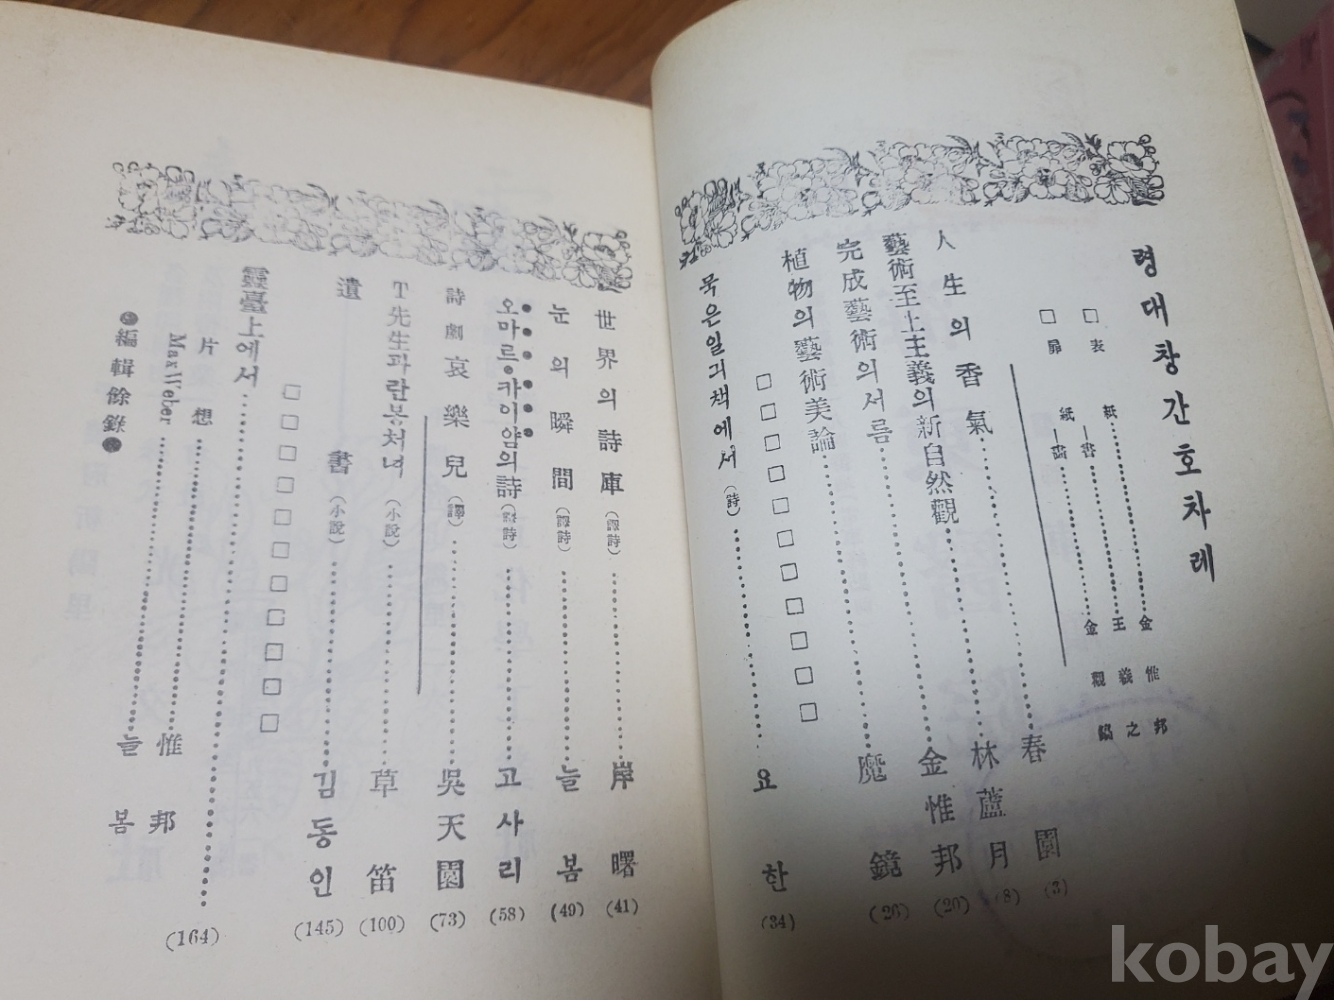 령대창간호차레
□表 紙…………金惟邦
―書…………王義之
□扉 紙―畵…………金觀鎬
人生의香氣…………春園(3)
藝術至上主義의新自然觀…………林蘆月(8)
完成藝術의서름…………金惟邦(20)
植物의藝術美論…………魔鏡(26)
□□□□□□□□□□
묵은일긔책에서(詩)…………요한(34)
世界의詩庫(譯詩)…………岸曙(41)
눈의瞬間(譯詩)…………늘봄(49)
오마르카이얌의詩(譯詩)…………고사리(58)
詩劇 哀樂兒(譯)…………吳天園(73)
T先生과란봉처녀(小說)…………草笛(100)
遺書(小說)…………김동인(145)
□□□□□□□□□□
靈臺上에서…………(164)
片想
Max Weber…………惟邦
●編輯餘錄●…………늘봄
kobay